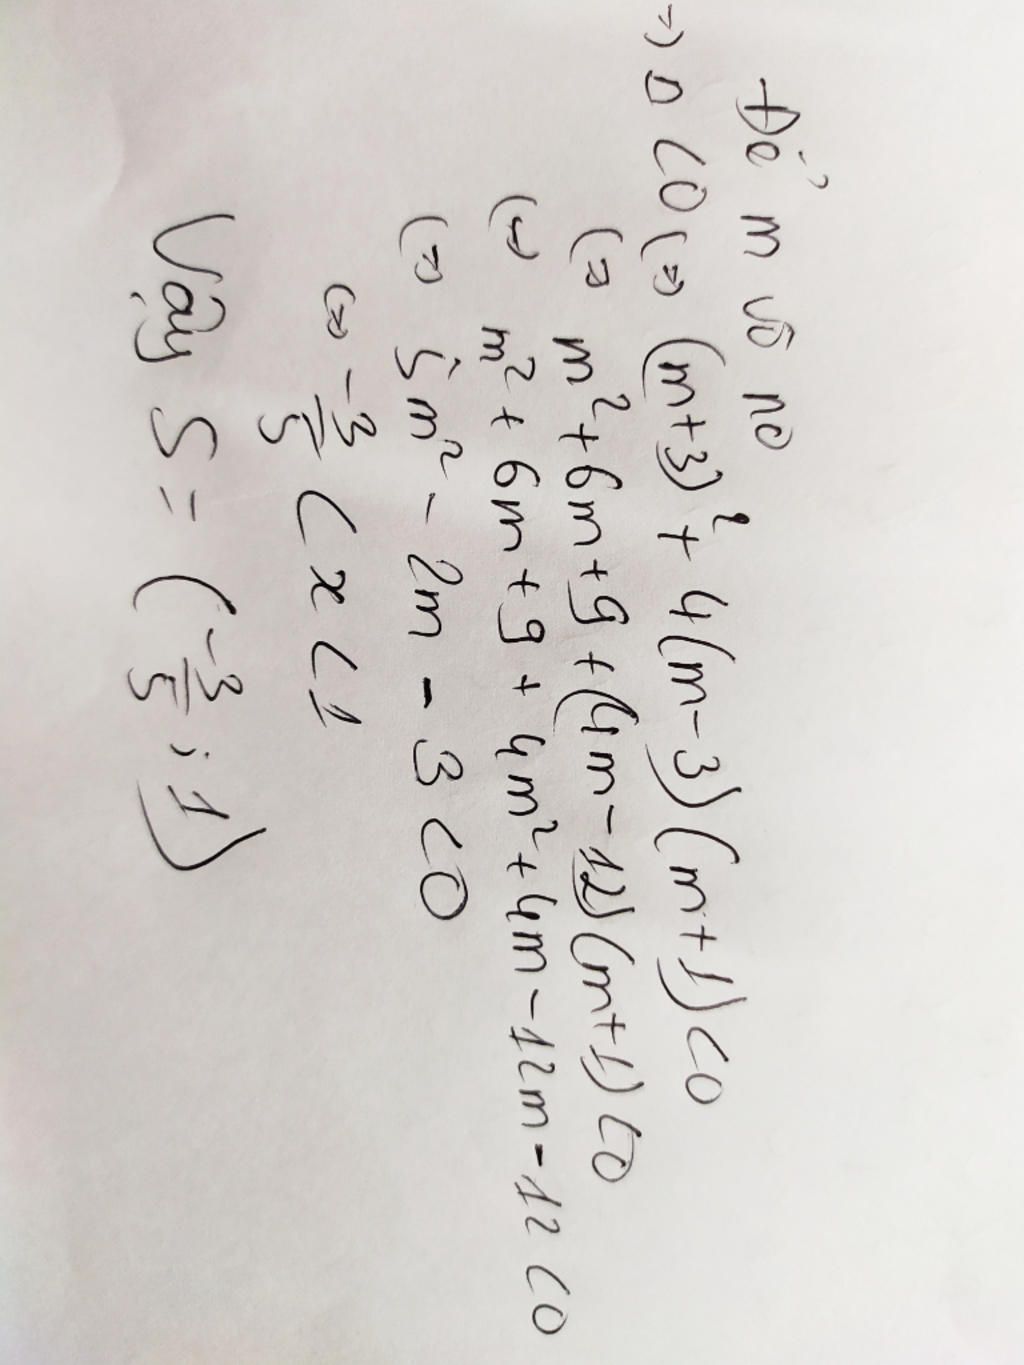 Để m vô no
=> Δ <0 (=> (m+3)² + 4(m-3)(m+1) <0
(=> m² + 6m + 9 + (4m - 12)(m+1) <0
(=> m² + 6m + 9 + 4m² + 4m - 12m - 12 <0
(=> 5m² - 2m - 3 <0
(=> -3/5 < x < 1
Vậy S = (-3/5 ; 1)